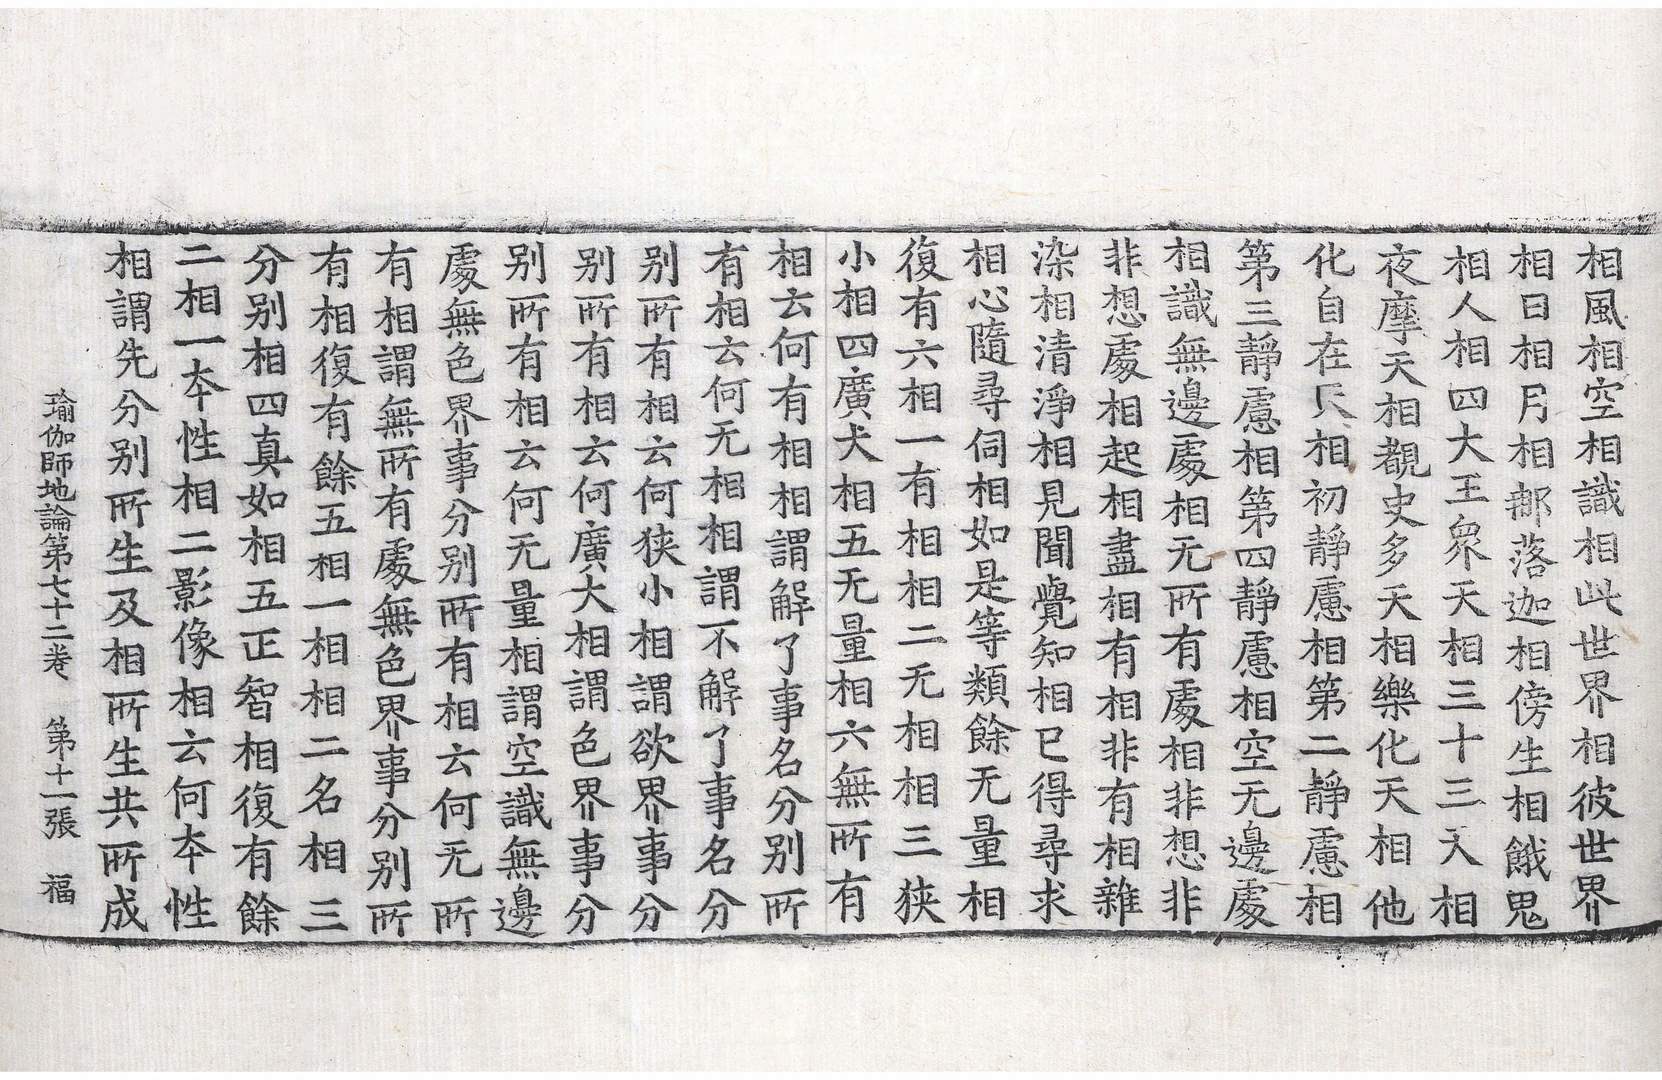 相風相空相識相此世界相彼世界
相日相月相那落迦相傍生相餓鬼
相人相四大王眾天相三十三天相
夜摩天相覩史多天相樂化天相他
化自在天相初靜慮相第二靜慮相
第三靜慮相第四靜慮相空无邊處
相識無邊處相无所有處相非想非
非想處相起相盡相有相非有相雜
染相清淨相見聞覺知相已得尋求
相心隨尋伺相如是等類餘无量相
復有六相一有相相二无相相三狹
小相四廣大相五无量相六無所有
相云何有相相謂解了事名分別所
有相云何无相相謂不解了事名分
別所有相云何狹小相謂欲界事分
別所有相云何廣大相謂色界事分
別所有相云何无量相謂空識無邊
處無色界事分別所有相云何无所
有相謂無所有處無色界事分別所
有相復有餘五相一相相二名相三
分別相四真如相五正智相復有餘
二相一本性相二影像相云何本性
相謂先分別所生及相所生共所成
瑜伽師地論第七十二卷 第十一張 福